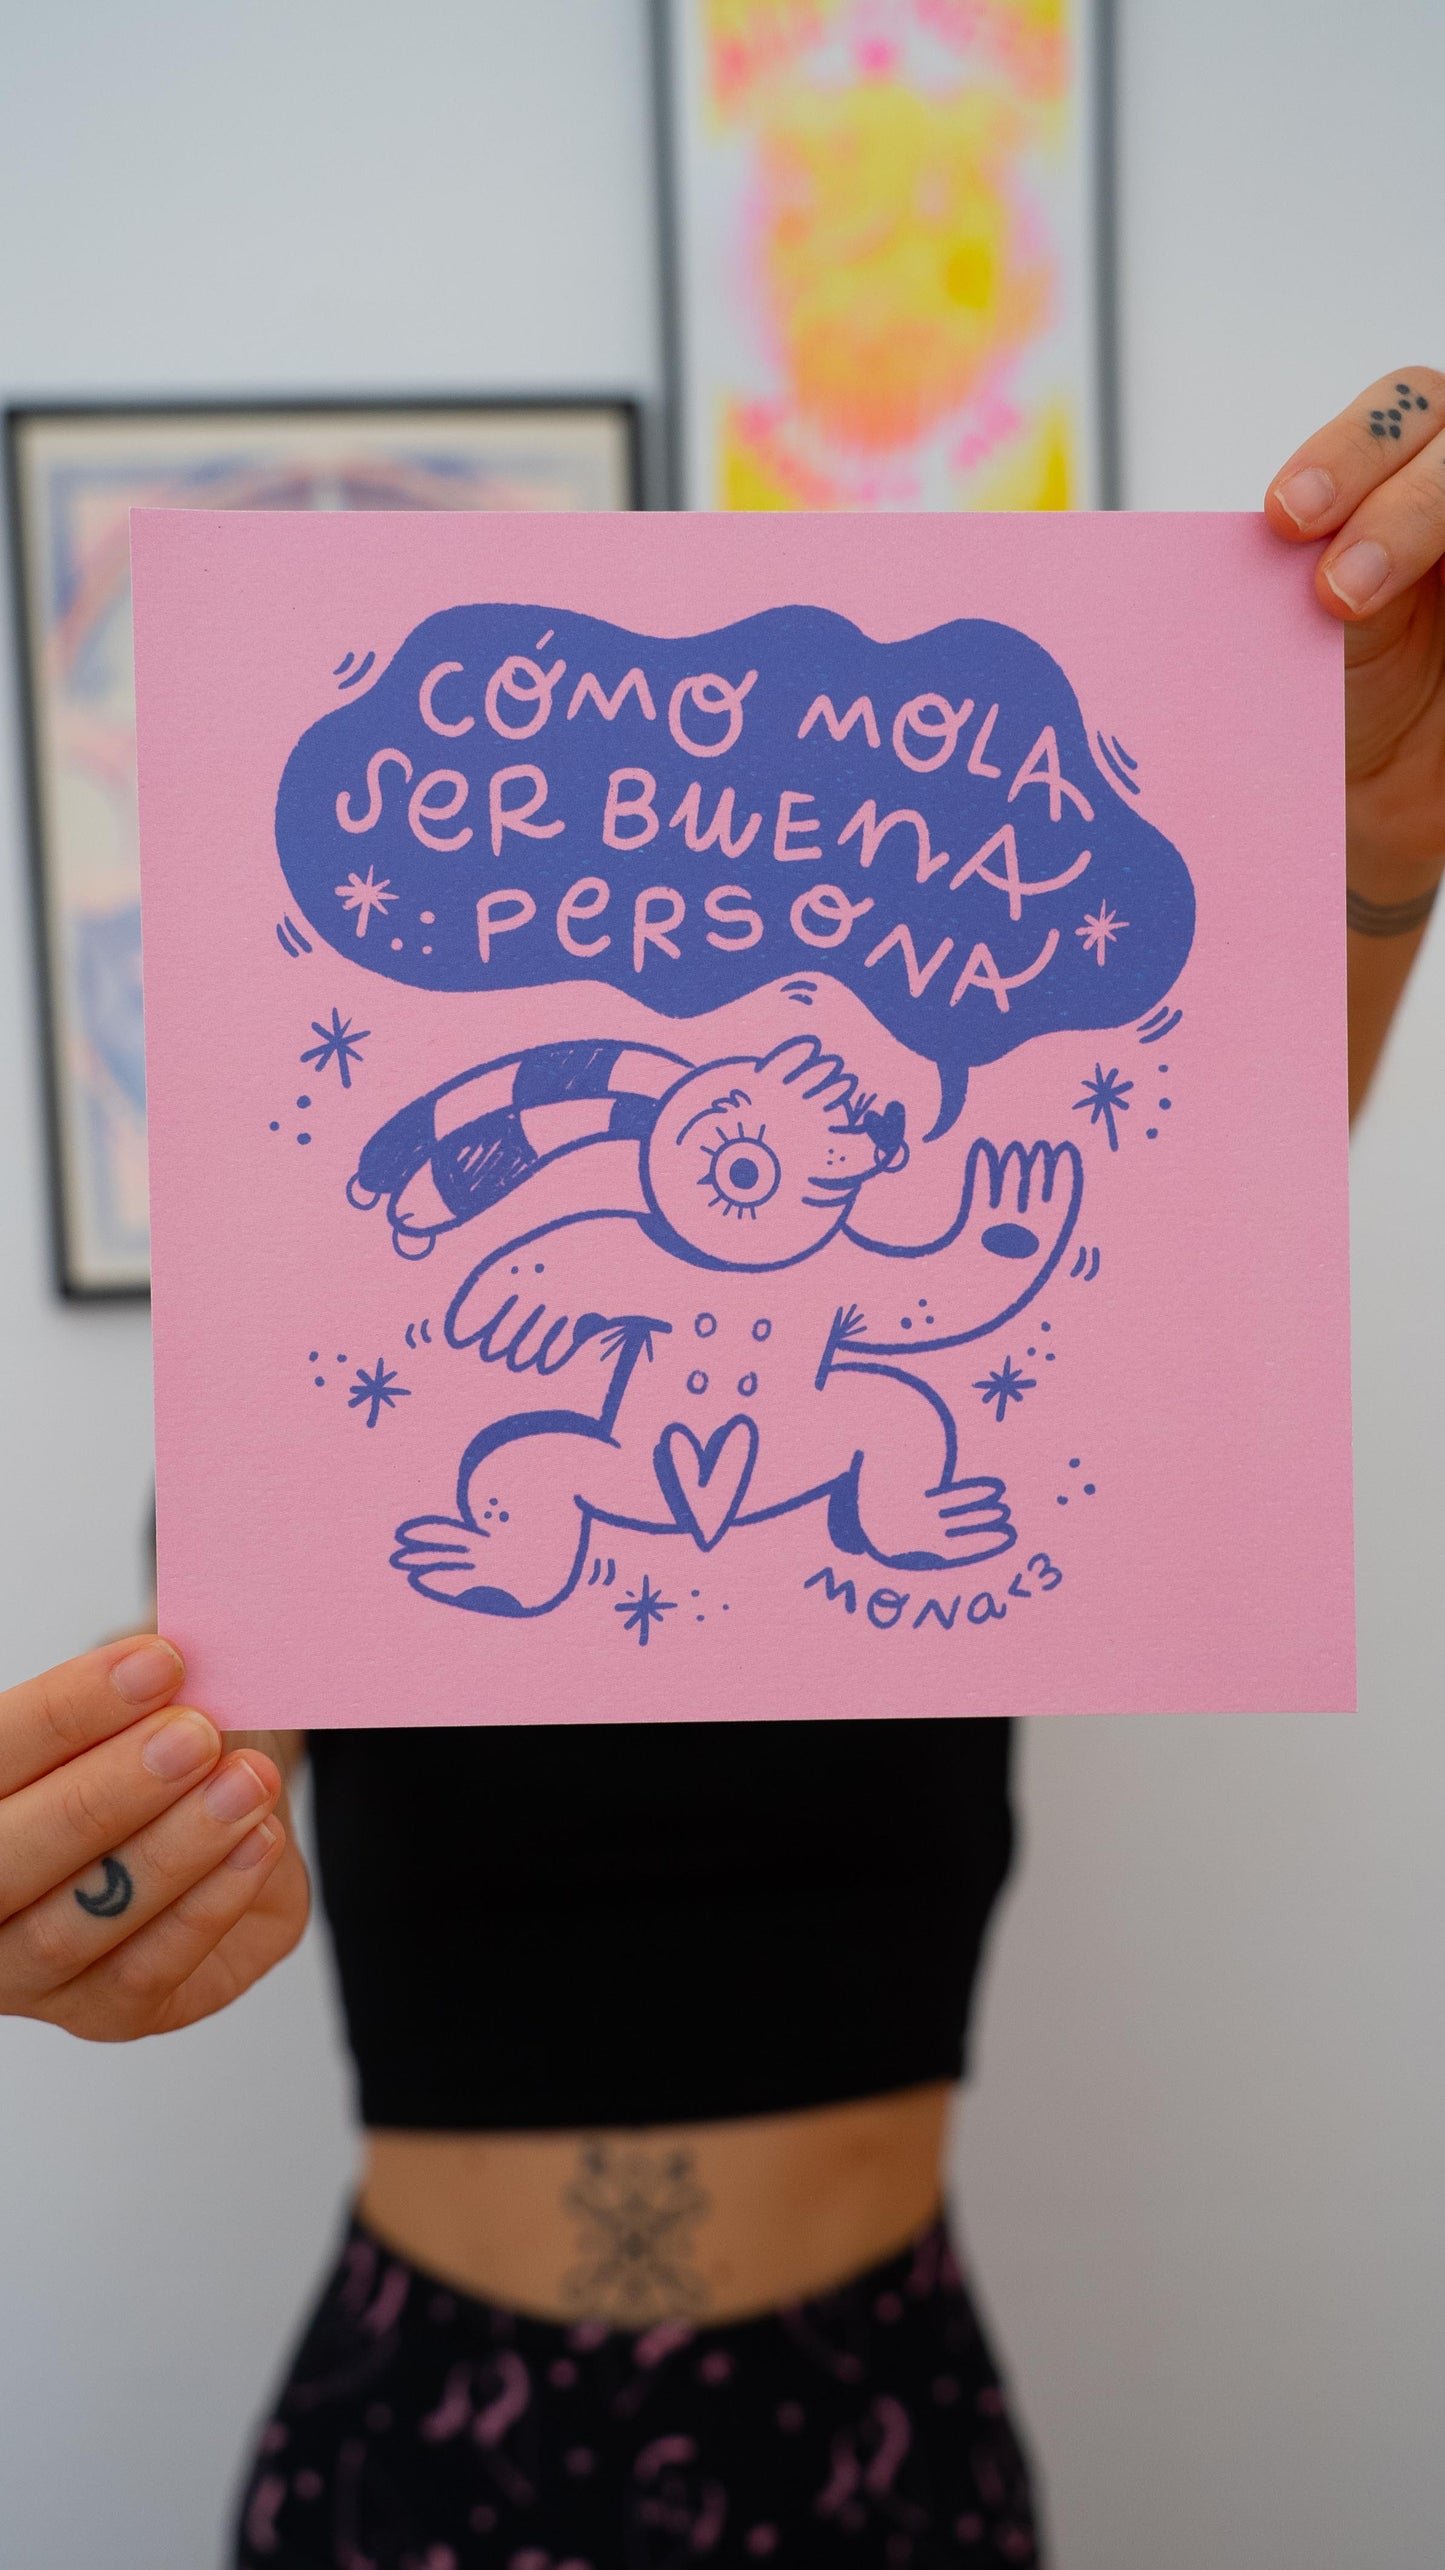 CÓMO MOLA
SER BUENA
PERSONA
MONA<3